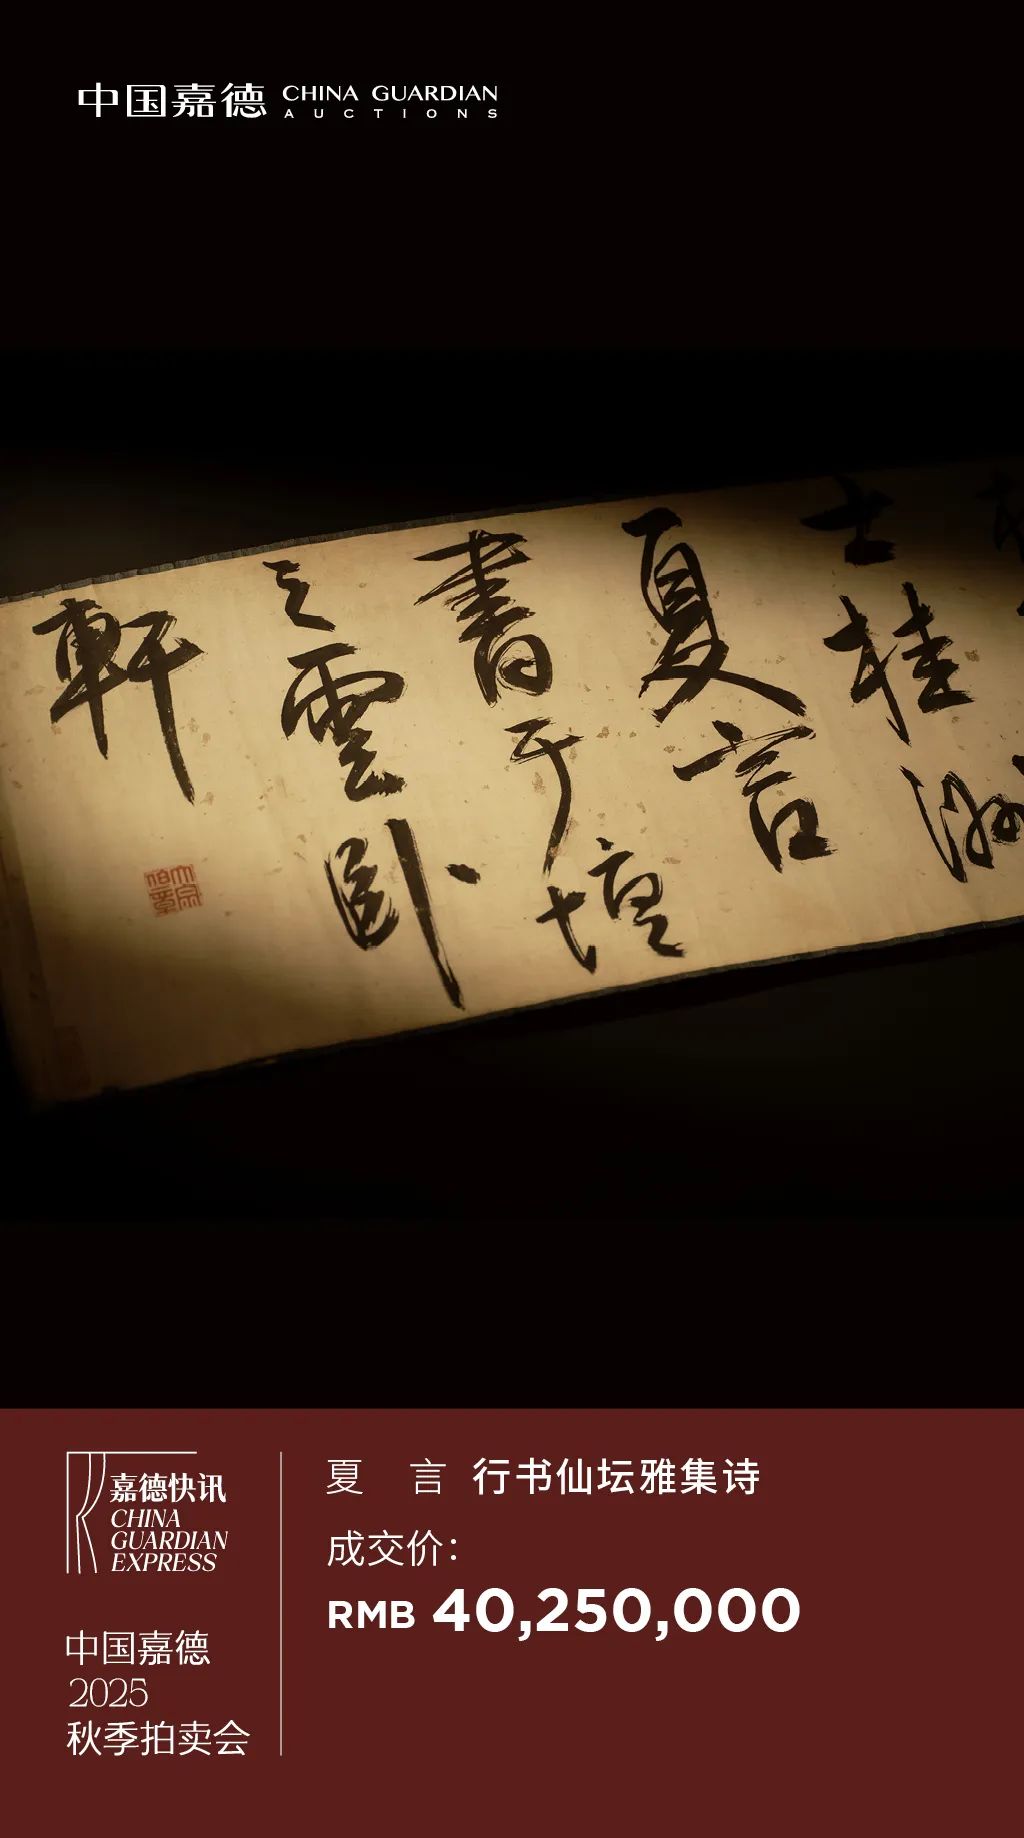 中国嘉德 CHINA GUARDIAN
AUCTIONS
士桂洲
夏言
書于壇
之雲卧
軒
嘉德快讯
CHINA
GUARDIAN
EXPRESS
中国嘉德
2025
秋季拍卖会
夏 言 行书仙坛雅集诗
成交价：
RMB 40,250,000